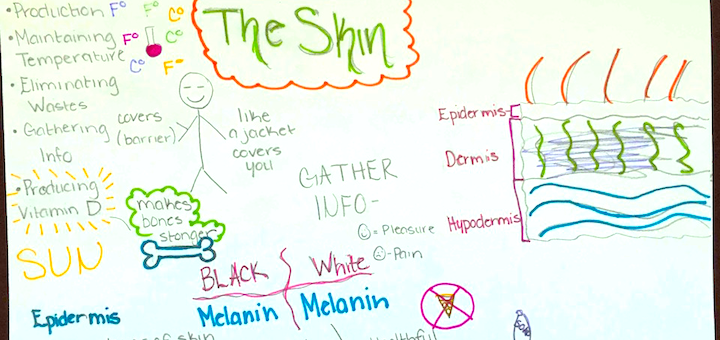 The Skin
• Production F° F° C°
• Maintaining F° C°
Temperature C° F°
• Eliminating
Wastes
• Gathering
Info
• Producing
Vitamin D
SUN
covers
(barrier)
like
a jacket
covers
you
makes
bones
stonger
GATHER
INFO-
= Pleasure
-Pain
Epidermis
Dermis
Hypodermis
BLACK White
Melanin Melanin
Epidermis
of skin